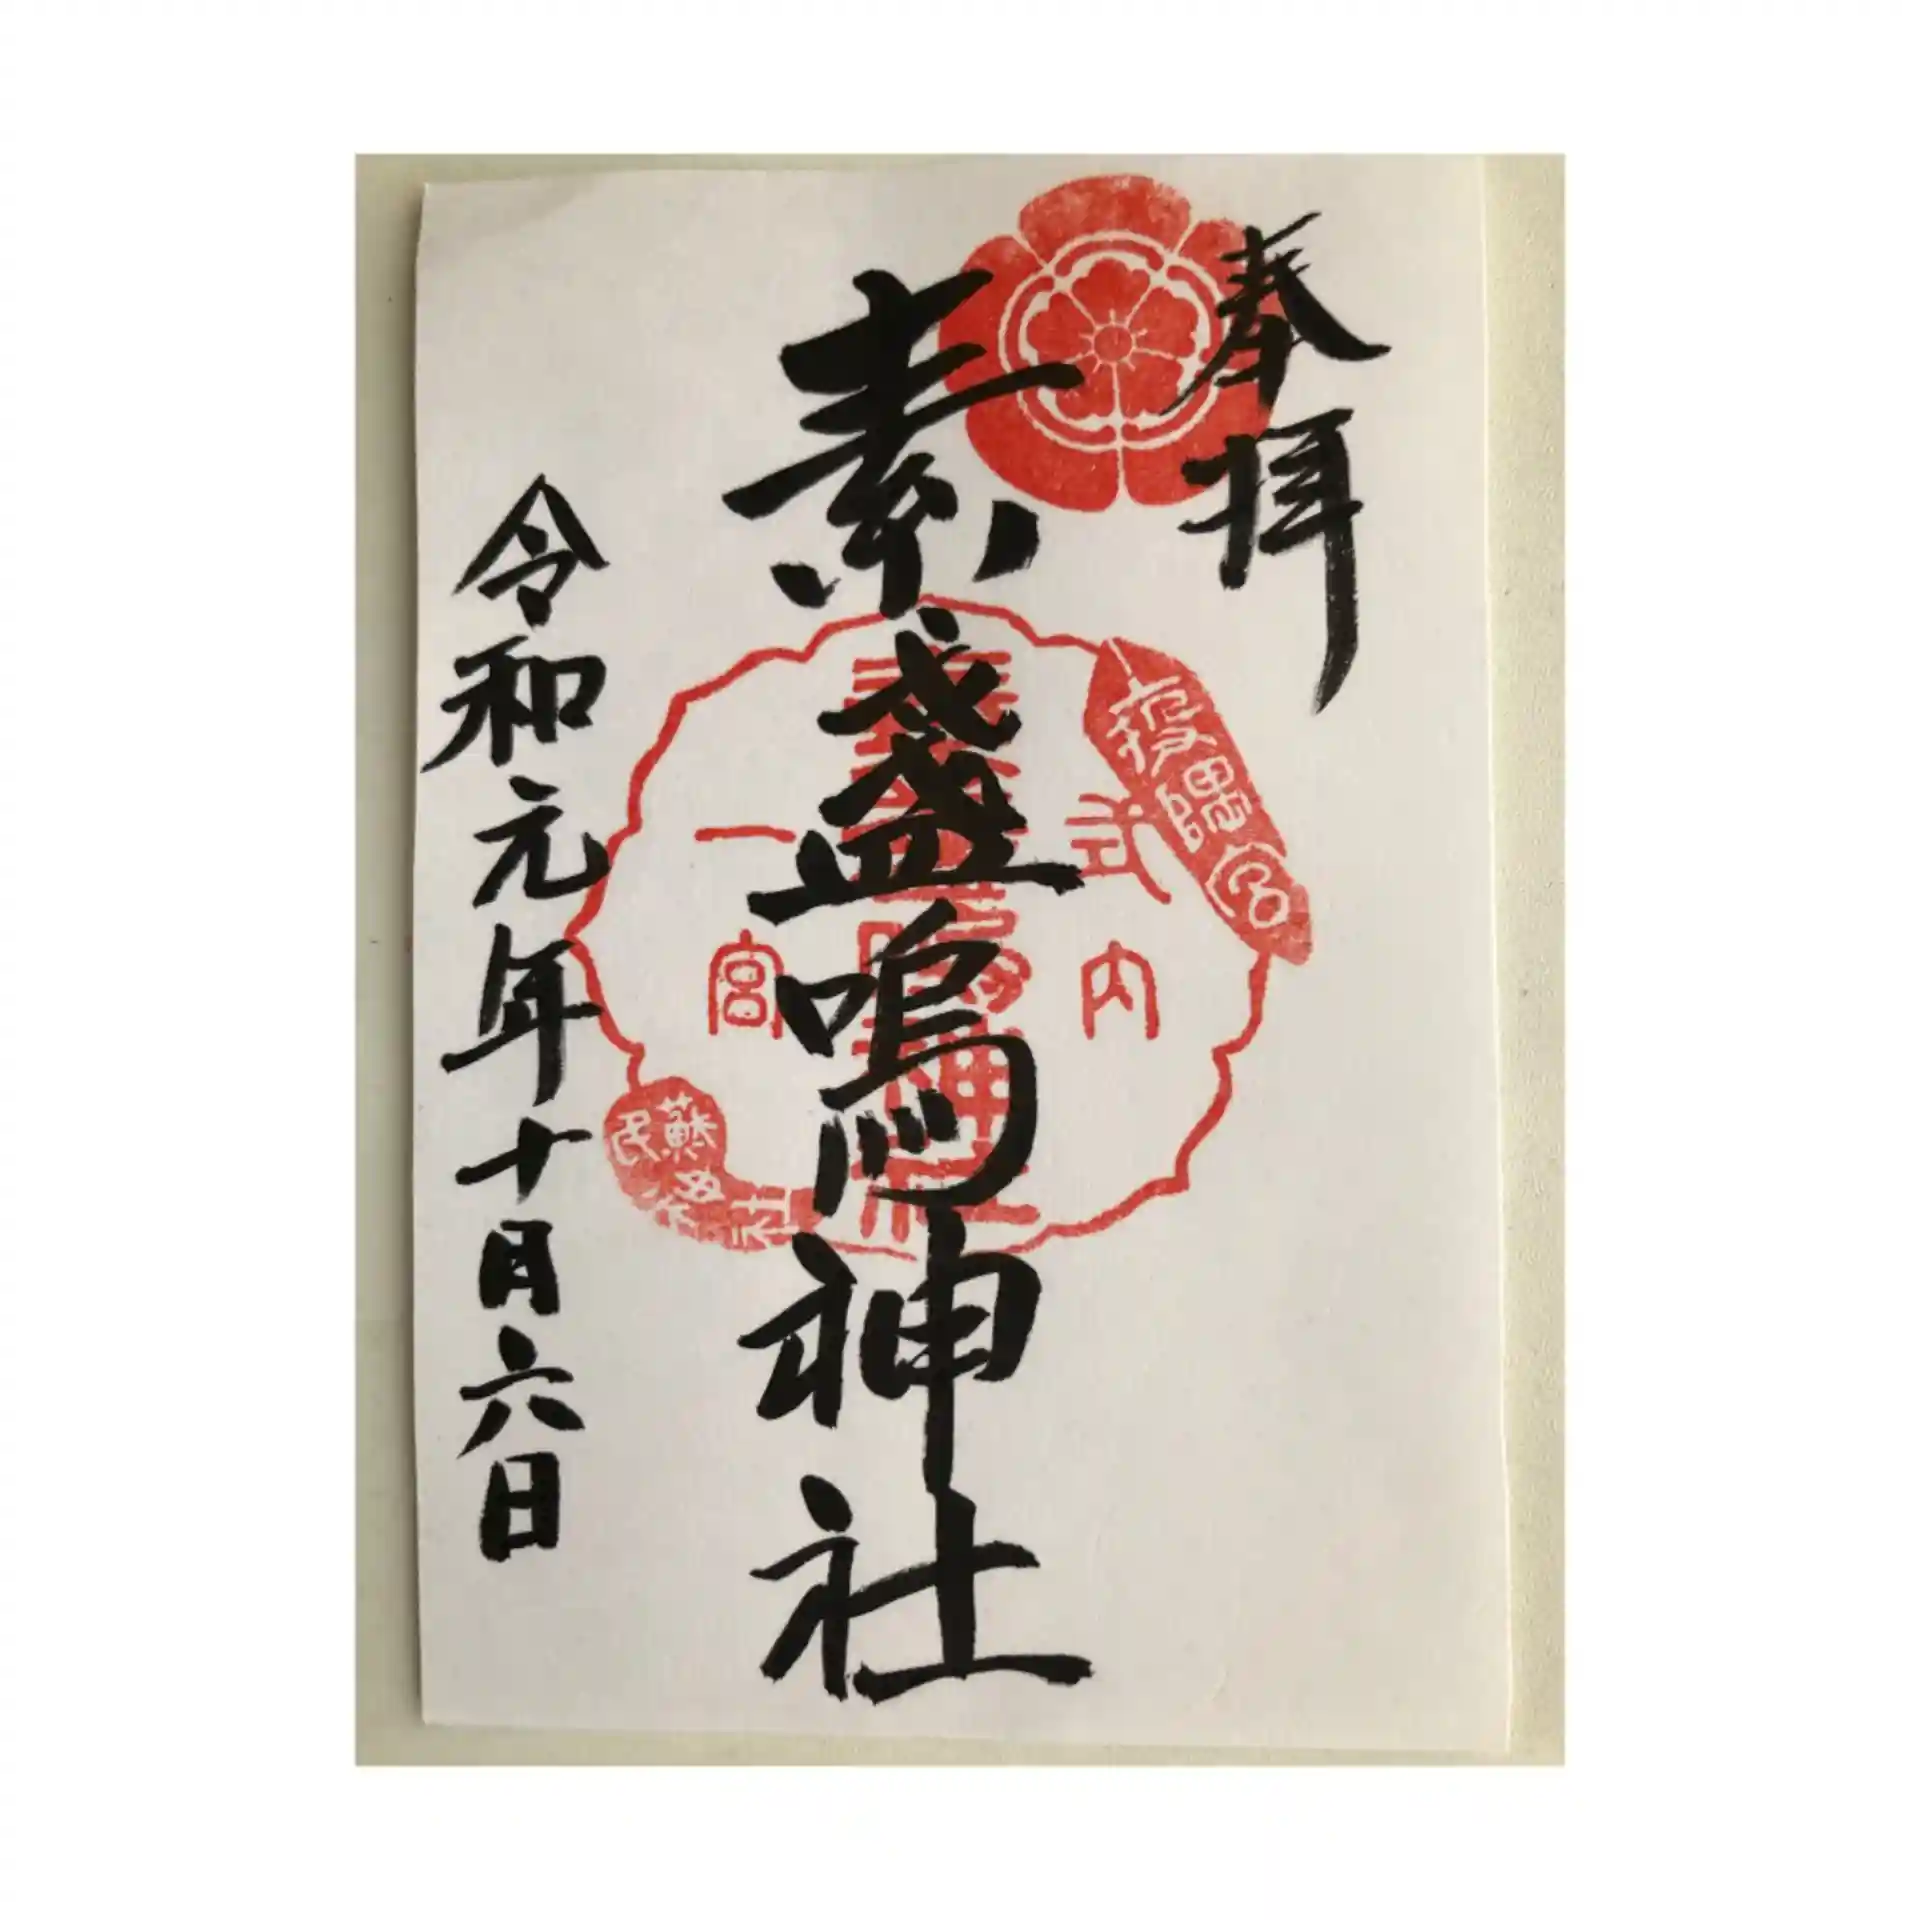 奉拝
素盞嗚神社
令和元年十月六日
式内
一宮
疫隅
蘇民将来
素盞嗚神社